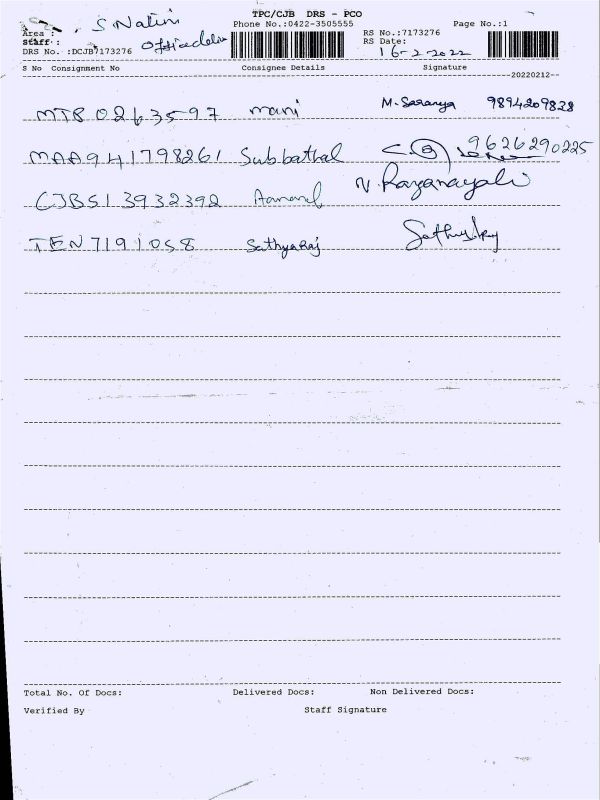 TPC/CJB DRS - PCO
S Nalini
Phone No.:0422-3505555 Page No.:1
Area :
RS No.:7173276
Staff :
RS Date:
16-2-2022
DRS No. :DCJB7173276
S No Consignment No Consignee Details Signature
--20220212--
MTB0263597 mani M. Saranya 9894209828
MAA941798261 Subbathal 9626290225
CJB513932392 Aanand
TEN7191058 Sathyaraj
Total No. Of Docs: Delivered Docs: Non Delivered Docs:
Verified By Staff Signature